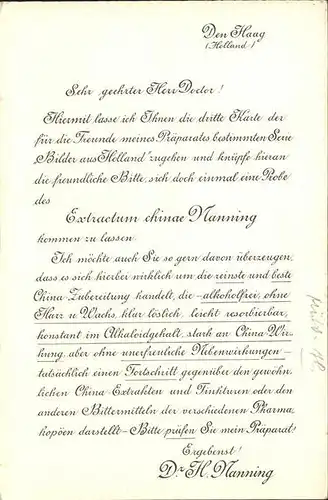 Den Haag
(Holland)
Sehr geehrter Herr Doctor!
Hiermit lasse ich Ihnen die dritte Karte der
für die Freunde meines Präparates bestimmten Serie
Bilder aus Holland zugehen und knüpfe hieran
die freundliche Bitte, sich doch einmal eine Probe
des
Extractum chinae Nanning
kommen zu lassen.
Ich möchte auch Sie so gern davon überzeugen,
dass es sich hierbei wirklich um die reinste und beste
China-Zubereitung handelt, die – alkoholfrei, ohne
Harz u. Wachs, klar löslich, leicht resorbierbar,
konstant im Alkaloidgehalt, stark an China-Wir-
kung, aber ohne unerfreuliche Nebenwirkungen –
tatsächlich einen Fortschritt gegenüber den gewöhn-
lichen China-Extrakten und Tinkturen oder den
anderen Bittermitteln der verschiedenen Pharma-
kopöen darstellt – Bitte prüfen Sie mein Präparat!
Ergebenst!
Dr. H. Nanning